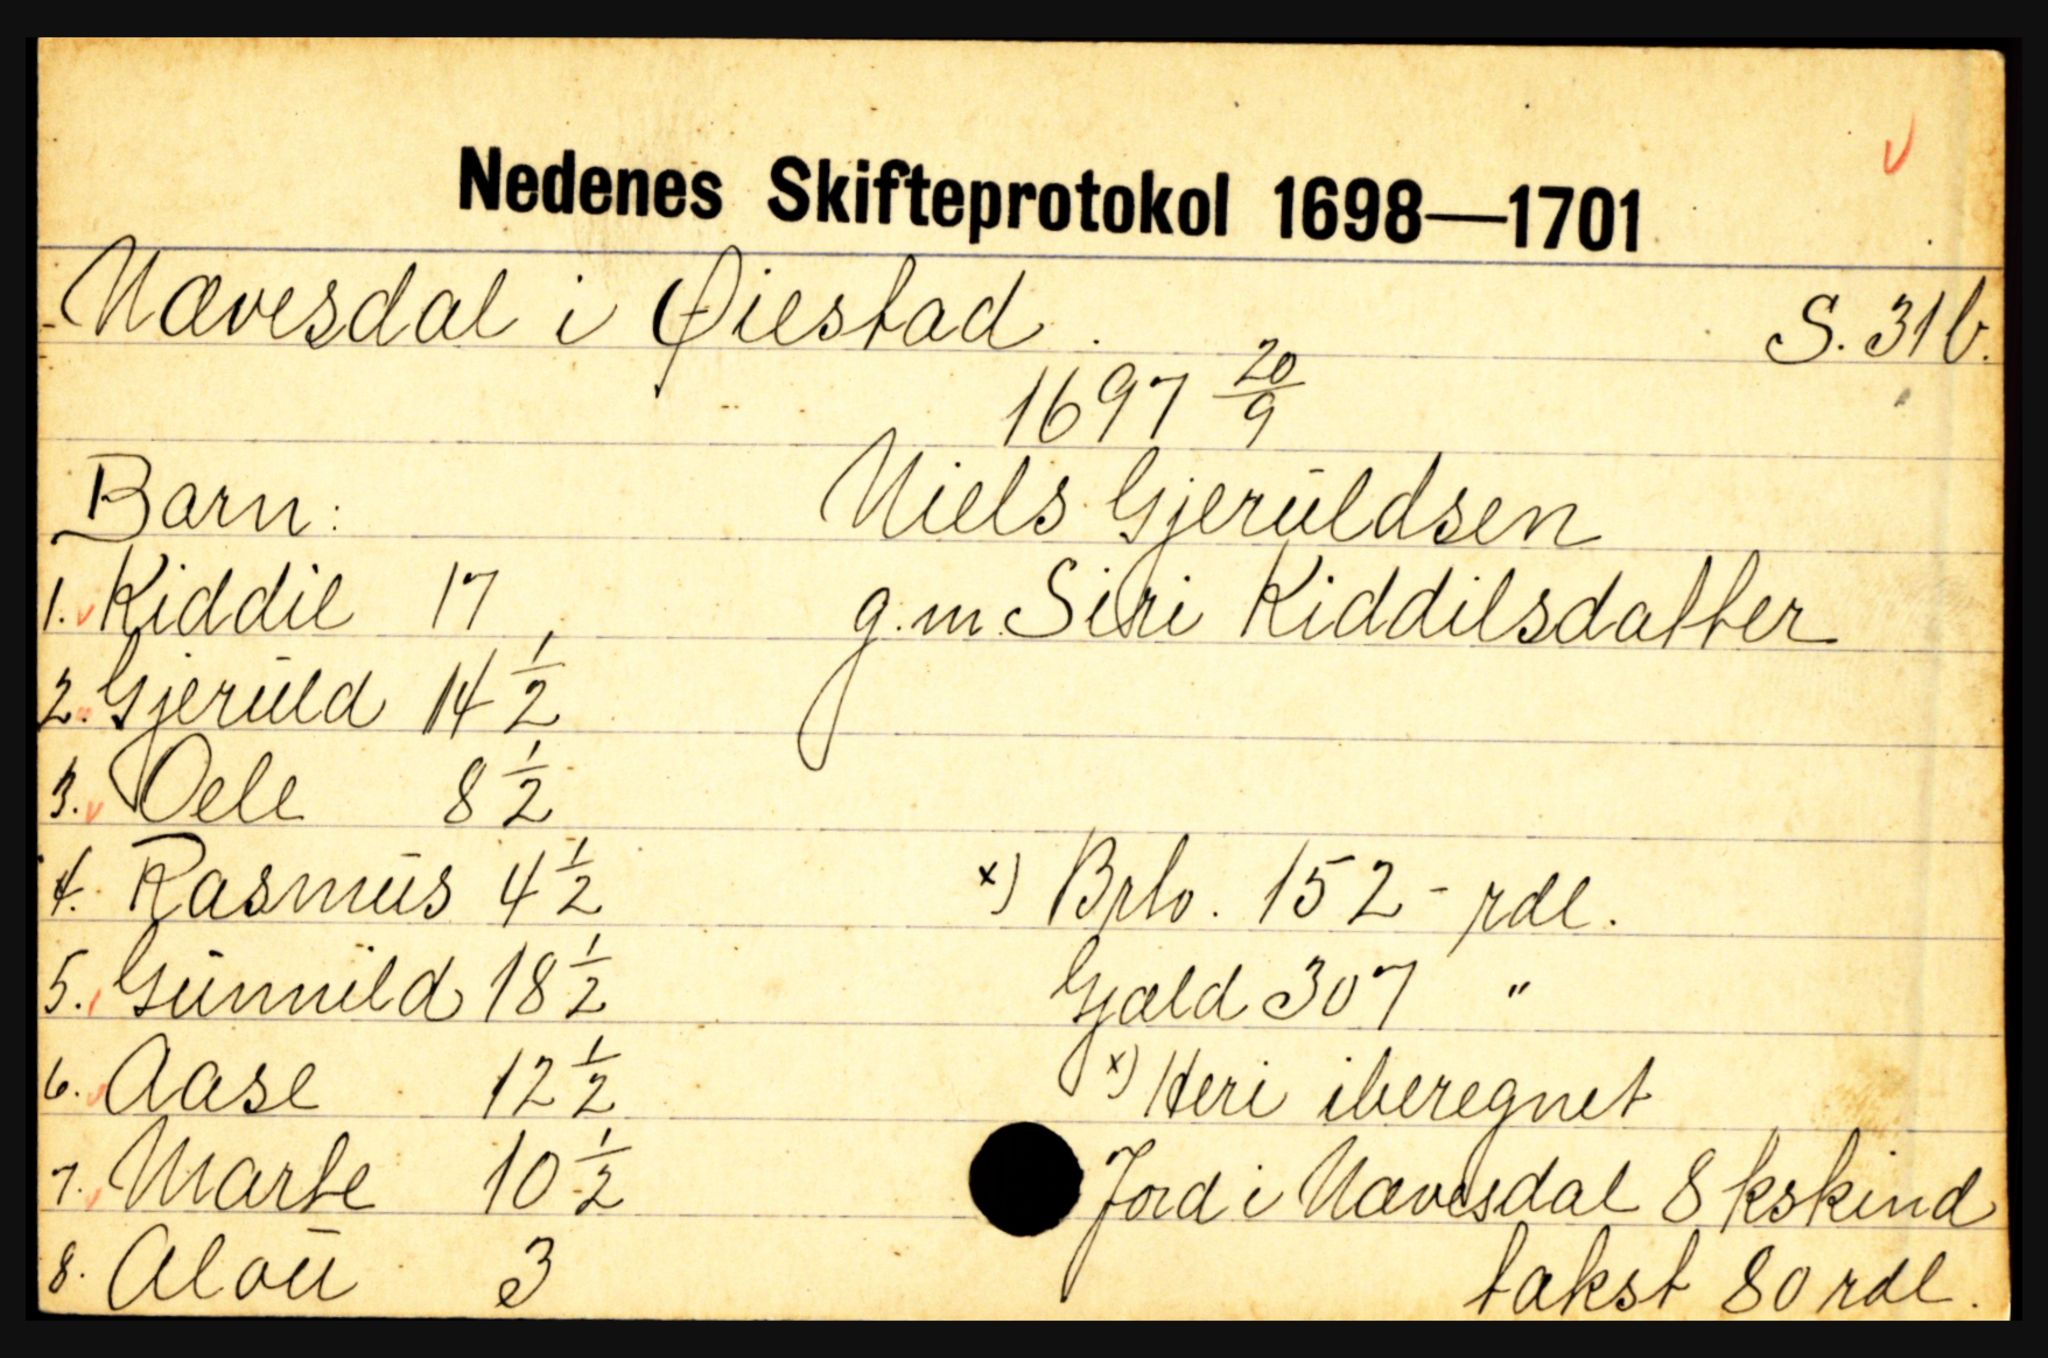 Nedenes Skifteprotokol 1698—1701
Nævesdal i Øiestad. S. 31b.
1697 20/9
Barn:
Niels Gjeruldsen
g.m. Siri Kiddilsdatter
1. Kiddil 17
2. Gjeruld 14 1/2
3. Oele 8 1/2
4. Rasmus 4 1/2
5. Gunnild 18 1/2
6. Aase 12 1/2
7. Marte 10 1/2
8. Alou 3
x) Brto. 152 - rdl.
Gjæld 307 "
x) Heri iberegnet
Jord i Nævesdal 8 kskind
takst 80 rdl.